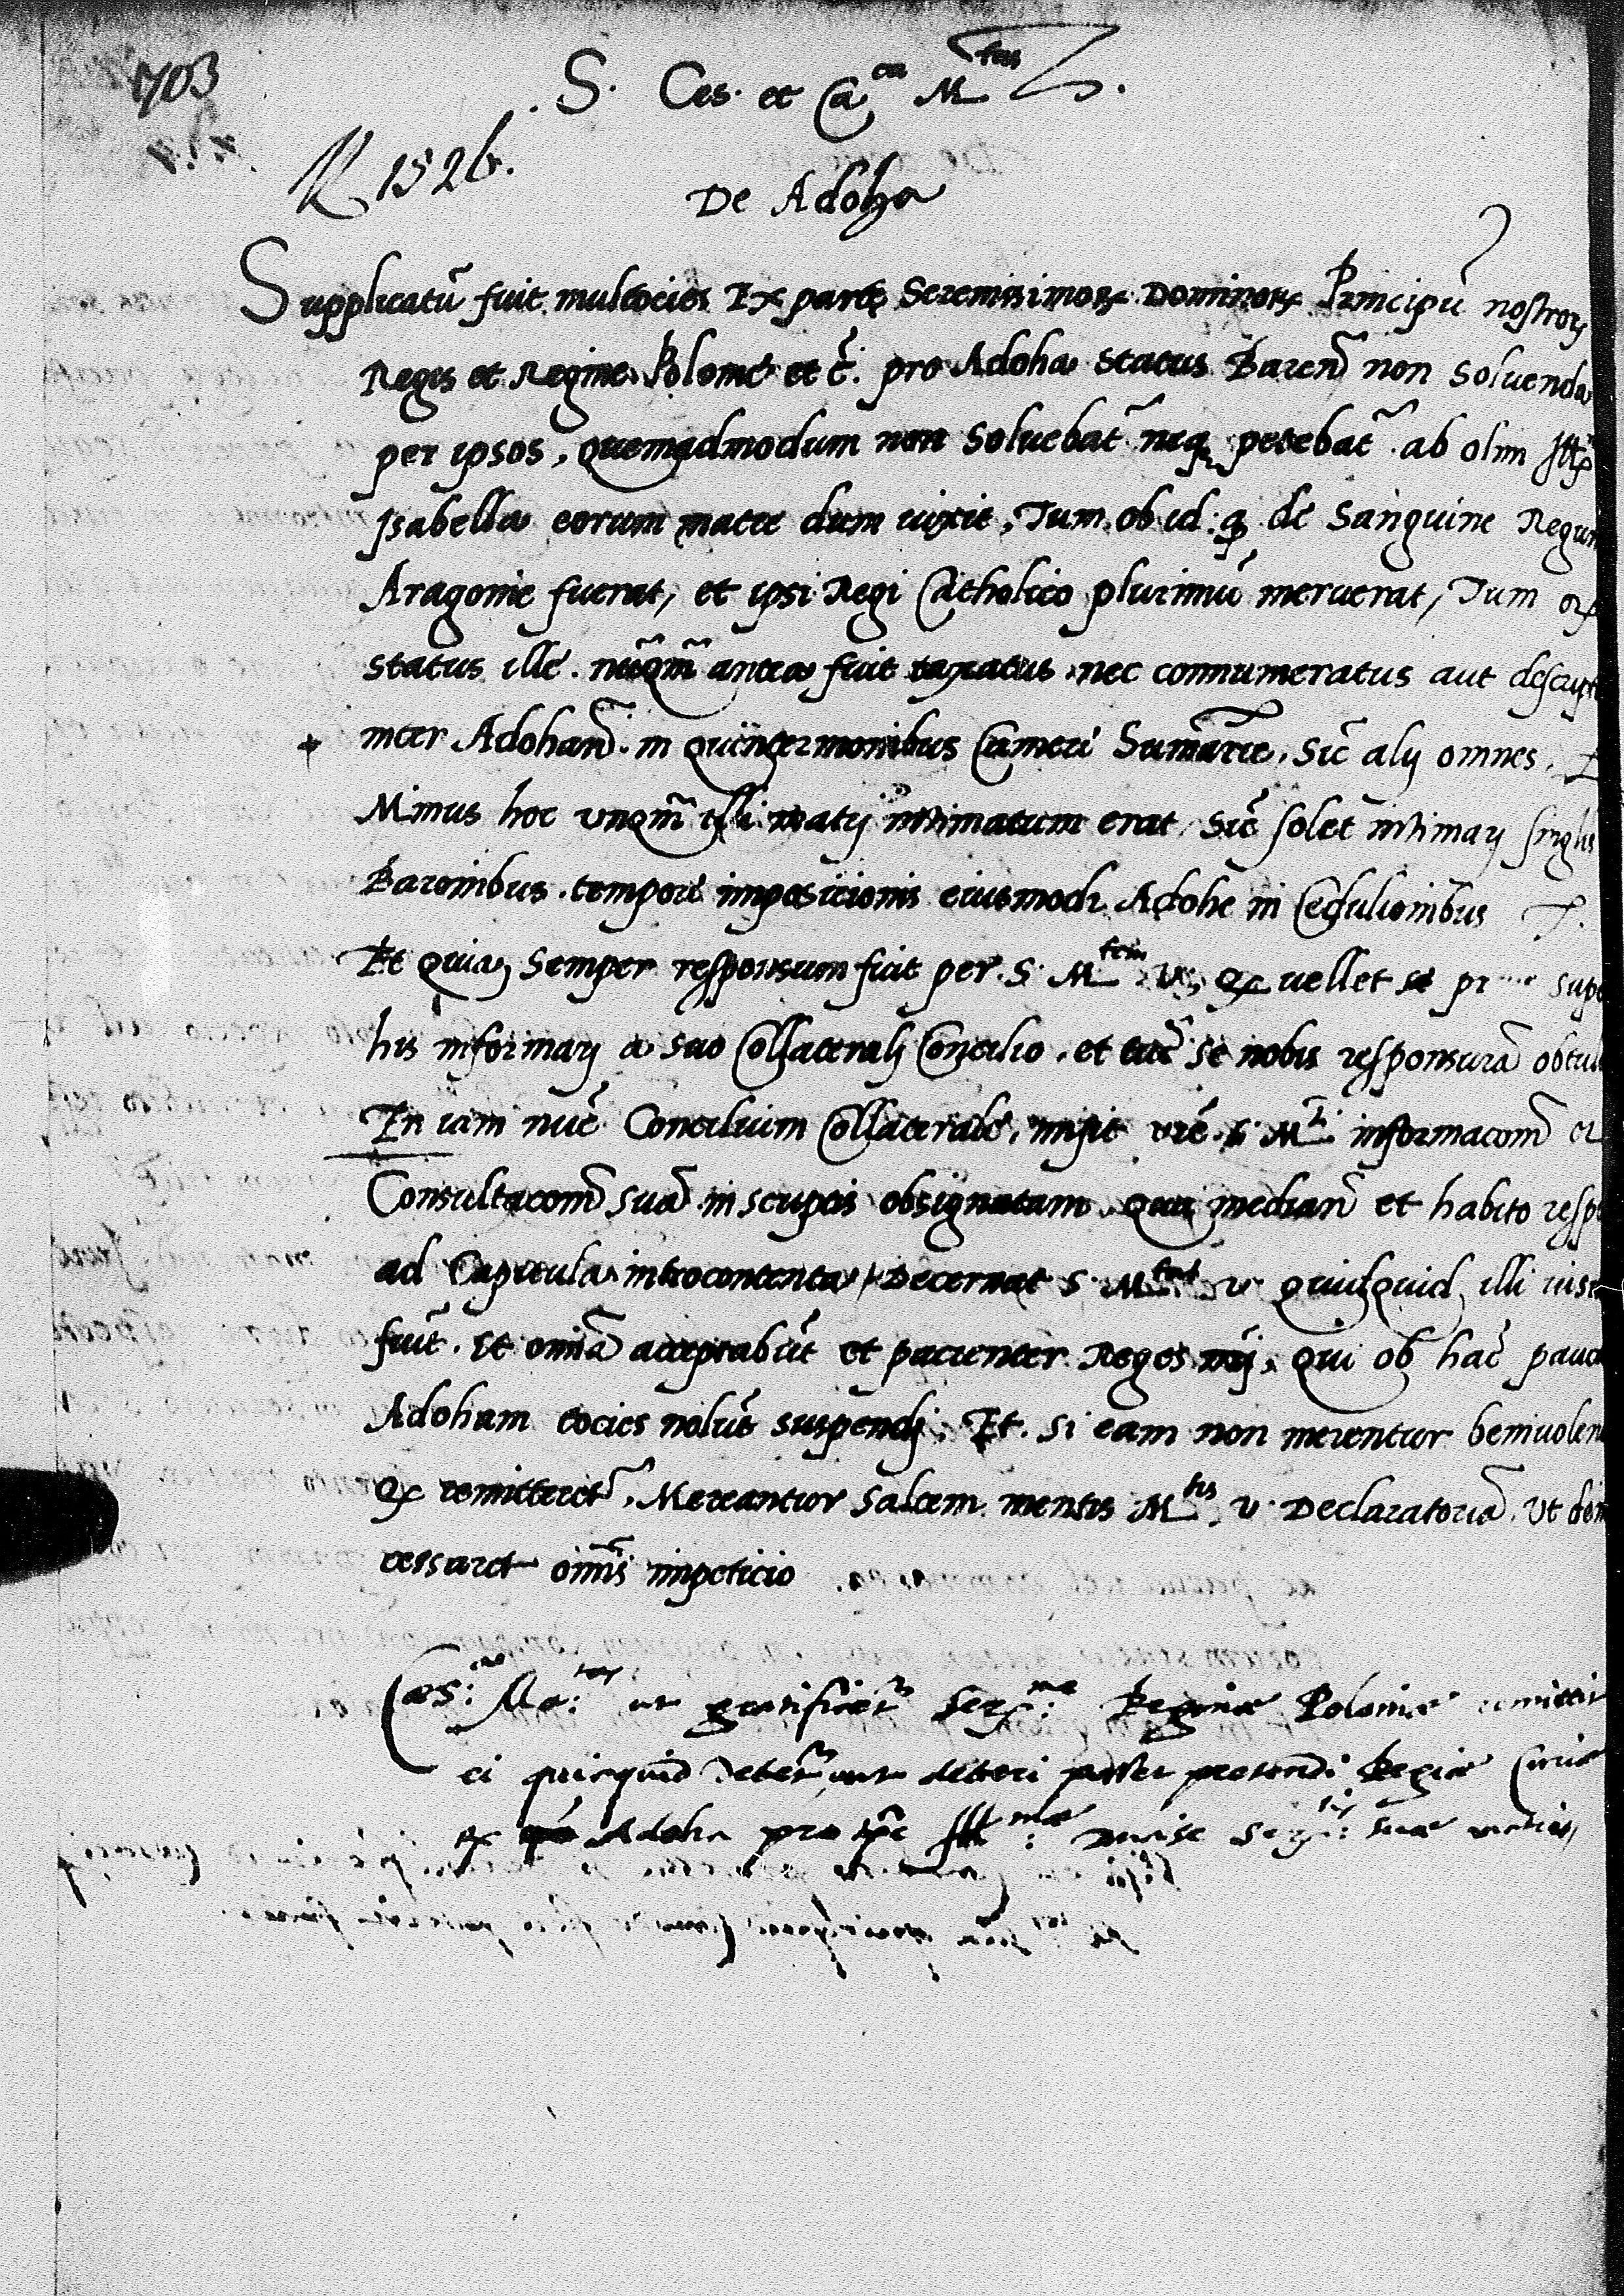 703
S. Ces. et Ca^ca M^tas
R 1526.
De Adoha
Supplicatũ fuit multocies Ex parte Serenissimorꝝ Dominorꝝ Principũ nostrorꝝ
Regis et Regine Polonie et c̃. pro Adoha status Bareñ non soluenda
per ipsos, quemadmodum non soluebat̃ neq petebat̃ ab olim Ill
Isabella eorum matre dum vixit, Tum ob id q de Sanguine Regum
Aragonie fuerat, et ipsi Regi Catholico plurimũ meruerat, Tum
status ille nũqm̃ antea fuit taxatus nec connumeratus aut descript
+ inter Adohañ in Quinternionibus Camere Sum̃arie, sic̃ alij omnes,
Minus hoc vnqm̃ illi matrj intimatum erat, sic̃ solet intimarj singlis
Baronibus tempore imposicionis eiusmodi Adohe in Cedulionibus
Et Quia semper responsum fuit per S. M^tem v, Q vellet se supe
his informarj a suo Collateralj Concilio, et tũc se nobis responsurã obtul
En iam nũc Concilium Collaterale, misit vrẽ S. M^ti informacom̃
Consultacom̃ suã in scriptis obsignatam qua mediañ et habito resp
ad Capitula introcontenta, Decernat S. M^tas v quidquid illi vis
fuit. et om̃ia acceptabũt et pacienter Reges mej, qui ob hãc pauc
Adoham tocies nolũt suspendj, Et si eam non merentur beniuolen
Q remitteret̃, Mereantur saltem mentis M^tis v Declaratoriã, Vt
cessaret om̃is impeticio
Caes: Ma: ut gratificet^r Ser^me: Reginae Poloniae remittit
ei quicquid debet^r aut deberi posset pretendi Regiae Curiae
Adoha pro Ill^mae: Ser: suae matris,